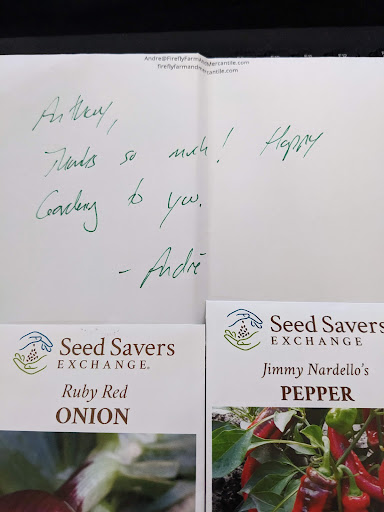 Andre@FireflyFarmandMercantile.com
fireflyfarmandmercantile.com
Anthony,
Thanks so much! Happy
Gardening to you.
- André
Seed Savers
EXCHANGE®
Ruby Red
ONION
Seed Savers
EXCHANGE
Jimmy Nardello's
PEPPER